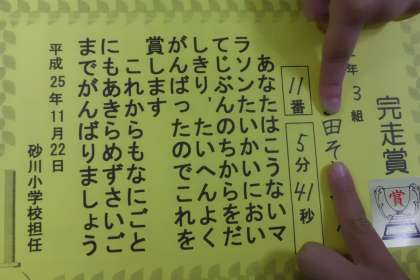 完走賞
年3組
田そ
11番
5分41秒
あなたはこうないマ
ラソンたいかいにおい
てじぶんのちからをだ
しきり、たいへんよく
がんばったのでこれを
賞します
これからもなにごと
にもあきらめずさいご
までがんばりましょう
平成25年11月22日
砂川小学校担任
賞